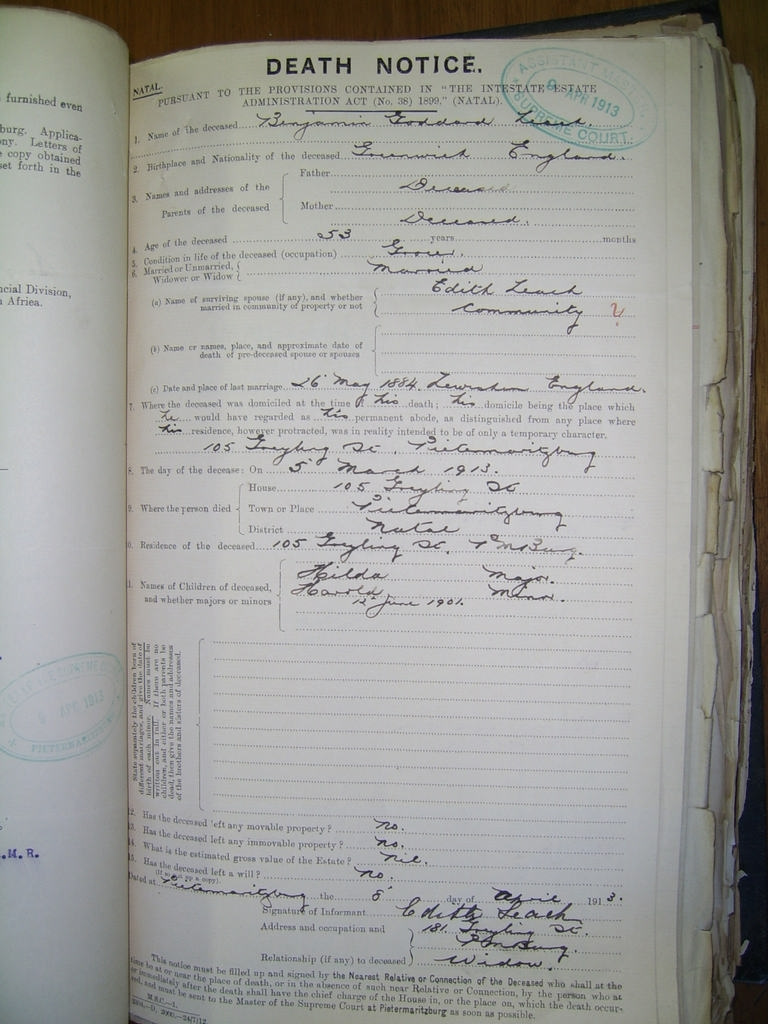 furnished even
burg. Applica-
ony. Letters of
copy obtained
set forth in the
cial Division,
Africa.
APR 1913
.M.R.
DEATH NOTICE.
NATAL.
PURSUANT TO THE PROVISIONS CONTAINED IN "THE INTESTATE ESTATE
ADMINISTRATION ACT (No. 38) 1899," (NATAL).
ASSISTANT MASTER
APR 1913
SUPREME COURT.
1. Name of the deceased Benjamin Goddard Leach.
2. Birthplace and Nationality of the deceased Greenwich England.
3. Names and addresses of the Parents of the deceased
Father Deceased
Mother Deceased.
4. Age of the deceased 53 years months
5. Condition in life of the deceased (occupation) Grocer.
6. Married or Unmarried, Widower or Widow Married
(a) Name of surviving spouse (if any), and whether married in community of property or not
Edith Leach
Community ?
(b) Name or names, place, and approximate date of death of pre-deceased spouse or spouses
(c) Date and place of last marriage 26 May 1884. Lewisham England.
7. Where the deceased was domiciled at the time of his death; his domicile being the place which
he would have regarded as his permanent abode, as distinguished from any place where
his residence, however protracted, was in reality intended to be of only a temporary character.
105 Greyling St. Pietermaritzburg
8. The day of the decease: On 5 March 1913.
9. Where the person died
House 105 Greyling St
Town or Place Pietermaritzburg
District Natal
10. Residence of the deceased 105 Greyling St. PMBurg.
11. Names of Children of deceased, and whether majors or minors
Hilda Major.
Harold Minor.
12 June 1901.
State separately the children born of
different marriages, and give the date of
birth of each minor. Names must be
written out in full. If there are no
children, and either or both parents be
dead, then give the names and addresses
of the brothers and sisters of deceased.
12. Has the deceased left any movable property? No.
13. Has the deceased left any immovable property? No.
14. What is the estimated gross value of the Estate? Nil.
15. Has the deceased left a will? No.
Dated at Pietermaritzburg the 8 day of April 1913.
Signature of Informant Edith Leach
Address and occupation and 181 Greyling St.
PMBurg.
Relationship (if any) to deceased Widow.
This notice must be filled up and signed by the Nearest Relative or Connection of the Deceased who shall at the
time be at or near the place of death, or in the absence of such near Relative or Connection, by the person who at
or immediately after the death shall have the chief charge of the House in, or the place on, which the death occur-
red, and must be sent to the Master of the Supreme Court at Pietermaritzburg as soon as possible.
M.S.C.—1.